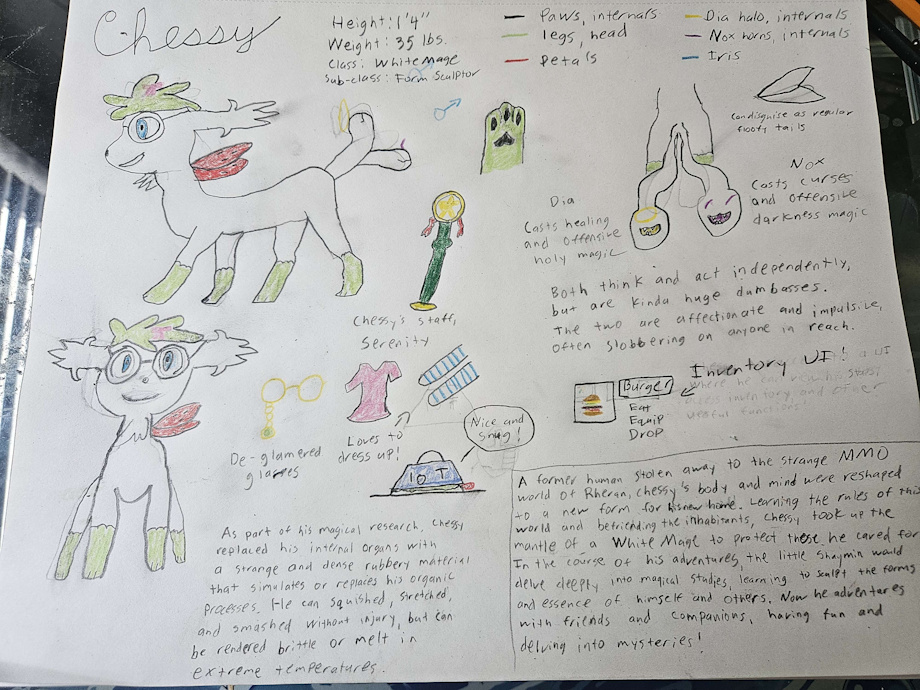 Chessy
Height: 1'4"
Weight: 35 lbs.
Class: White Mage
Sub-class: Form Sculptor
Paws, internals
legs, head
Petals
Dia halo, internals
Nox horns, internals
Iris
Can disguise as regular
floofy tails
Nox
Casts curses
and offensive
darkness magic
Dia
Casts healing
and offensive
holy magic
Both think and act independently,
but are kinda huge dumbasses.
The two are affectionate and impulsive,
often slobbering on anyone in reach.
Chessy's staff,
Serenity
De-glamered
glasses
Loves to
dress up!
Nice and
snug!
10 T
Inventory UI!
Burger
Eat
Equip
Drop
As part of his magical research, Chessy
replaced his internal organs with
a strange and dense rubbery material
that simulates or replaces his organic
processes. He can squished, stretched,
and smashed without injury, but can
be rendered brittle or melt in
extreme temperatures.
A former human stolen away to the strange MMO
world of Rheran, Chessy's body and mind were reshaped
to a new form for his new home. Learning the rules of this
world and befriending the inhabitants, Chessy took up the
mantle of a White Mage to protect those he cared for.
In the course of his adventures, the little Shaymin would
delve deeply into magical studies, learning to sculpt the forms
and essence of himself and others. Now he adventures
with friends and companions, having fun and
delving into mysteries!